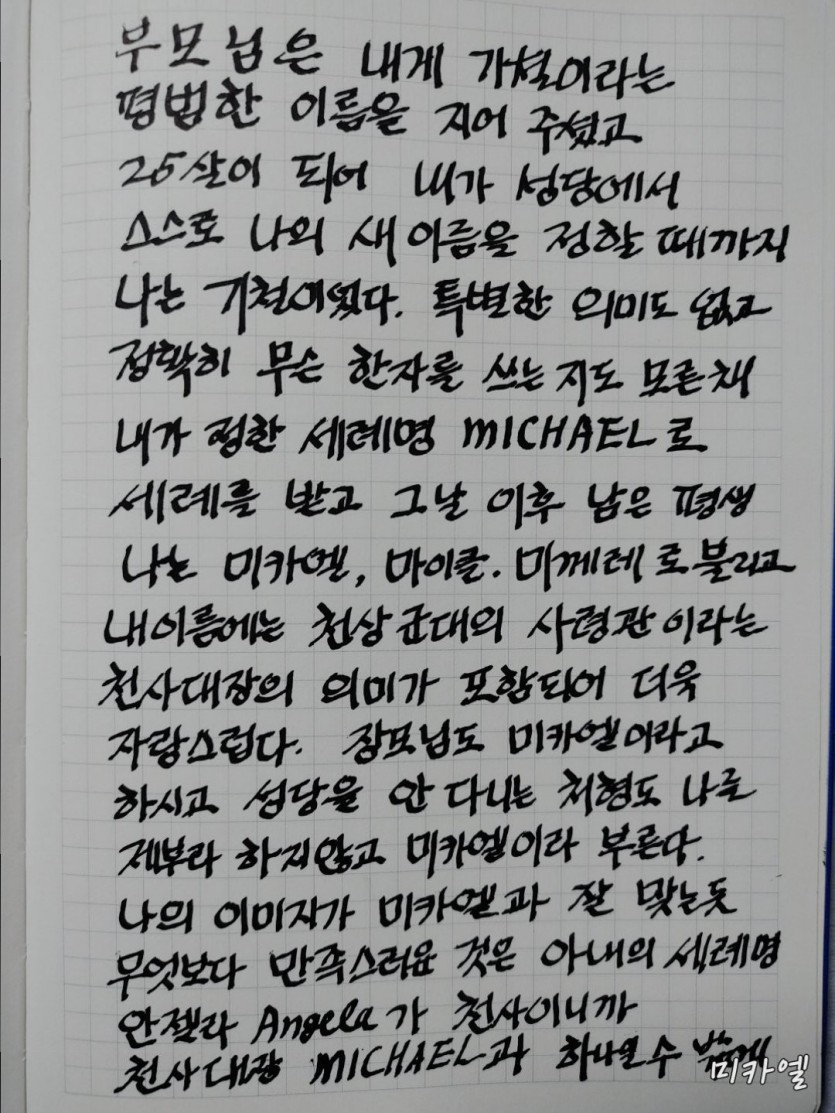 부모님은 내게 기철이라는
평범한 이름을 지어 주셨고
25살이 되어 내가 성당에서
스스로 나의 새 이름을 정할 때까지
나는 기철이었다. 특별한 의미도 없고
정확히 무슨 한자를 쓰는지도 모른채
내가 정한 세례명 MICHAEL로
세례를 받고 그날 이후 남은 평생
나는 미카엘, 마이클. 미께레로 불리고
내이름에는 천상군대의 사령관이라는
천사대장의 의미가 포함되어 더욱
자랑스럽다. 장모님도 미카엘이라고
하시고 성당을 안 다니는 처형도 나를
제부라 하지않고 미카엘이라 부른다.
나의 이미지가 미카엘과 잘 맞는듯
무엇보다 만족스러운 것은 아내의 세례명
안젤라 Angela가 천사이니까
천사대장 MICHAEL과 하나일 수 밖에
미카엘